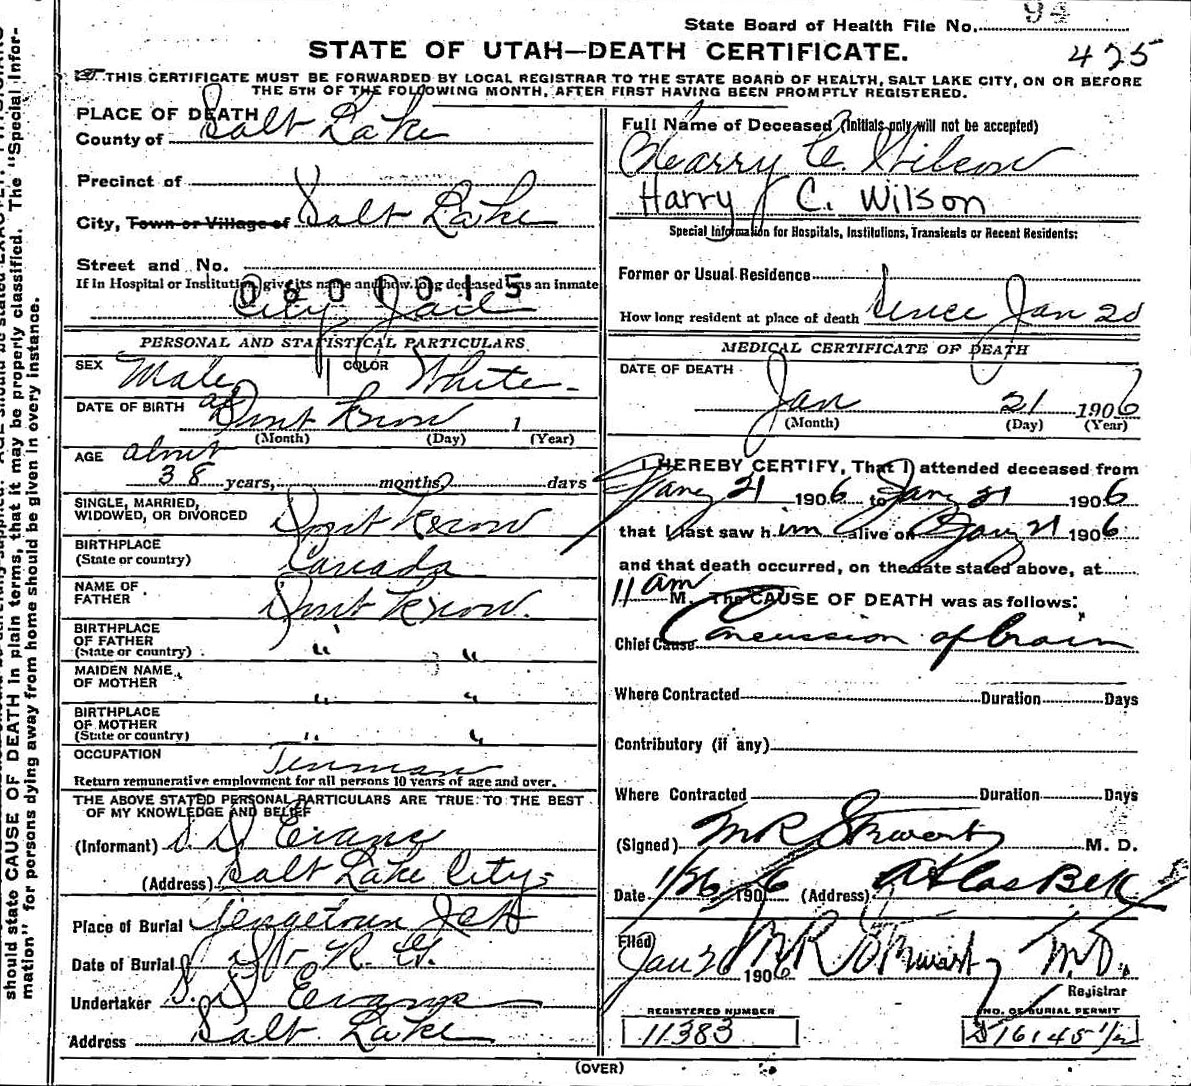 State Board of Health File No. 94
STATE OF UTAH—DEATH CERTIFICATE. 425
THIS CERTIFICATE MUST BE FORWARDED BY LOCAL REGISTRAR TO THE STATE BOARD OF HEALTH, SALT LAKE CITY, ON OR BEFORE
THE 5TH OF THE FOLLOWING MONTH, AFTER FIRST HAVING BEEN PROMPTLY REGISTERED.
PLACE OF DEATH
County of Salt Lake
Precinct of
City, Town or Village of Salt Lake
Street and No.
If in Hospital or Institution, give its name and how long deceased was an inmate
0601015
City Jail
PERSONAL AND STATISTICAL PARTICULARS
SEX Male COLOR White
DATE OF BIRTH Dont Know 1
(Month) (Day) (Year)
AGE about
38 years, months, days
SINGLE, MARRIED,
WIDOWED, OR DIVORCED Dont Know
BIRTHPLACE
(State or country) Canada
NAME OF
FATHER Dont Know.
BIRTHPLACE
OF FATHER
(State or country) " "
MAIDEN NAME
OF MOTHER " "
BIRTHPLACE
OF MOTHER
(State or country) " "
OCCUPATION
Return remunerative employment for all persons 10 years of age and over.
THE ABOVE STATED PERSONAL PARTICULARS ARE TRUE TO THE BEST
OF MY KNOWLEDGE AND BELIEF
(Informant) S. D Evans
(Address) Salt Lake City
Place of Burial
Date of Burial
Undertaker S. D Evans
Address Salt Lake
Full Name of Deceased (Initials only will not be accepted)
Harry C. Wilson
Harry C. Wilson
Special Information for Hospitals, Institutions, Transients or Recent Residents:
Former or Usual Residence
How long resident at place of death Since Jan 20
MEDICAL CERTIFICATE OF DEATH
DATE OF DEATH
Jan 21 1906
(Month) (Day) (Year)
I HEREBY CERTIFY, That I attended deceased from
Jany 21 1906 to Jany 21 1906
that I last saw him alive on Jany 21 1906
and that death occurred, on the date stated above, at
11 am M. The CAUSE OF DEATH was as follows:
Chief Cause Concussion of brain
Where Contracted Duration Days
Contributory (if any)
Where Contracted Duration Days
(Signed) M R Stewart M. D.
Date 1/26 1906 (Address) Atlas Blk
Filed Jan 26 1906 M R Stewart M.D.
Registrar
REGISTERED NUMBER
11383
NO. OF BURIAL PERMIT
(OVER)
should state CAUSE OF DEATH in plain terms, that it may be properly classified. The "Special Infor-
mation" for persons dying away from home should be given in every instance.